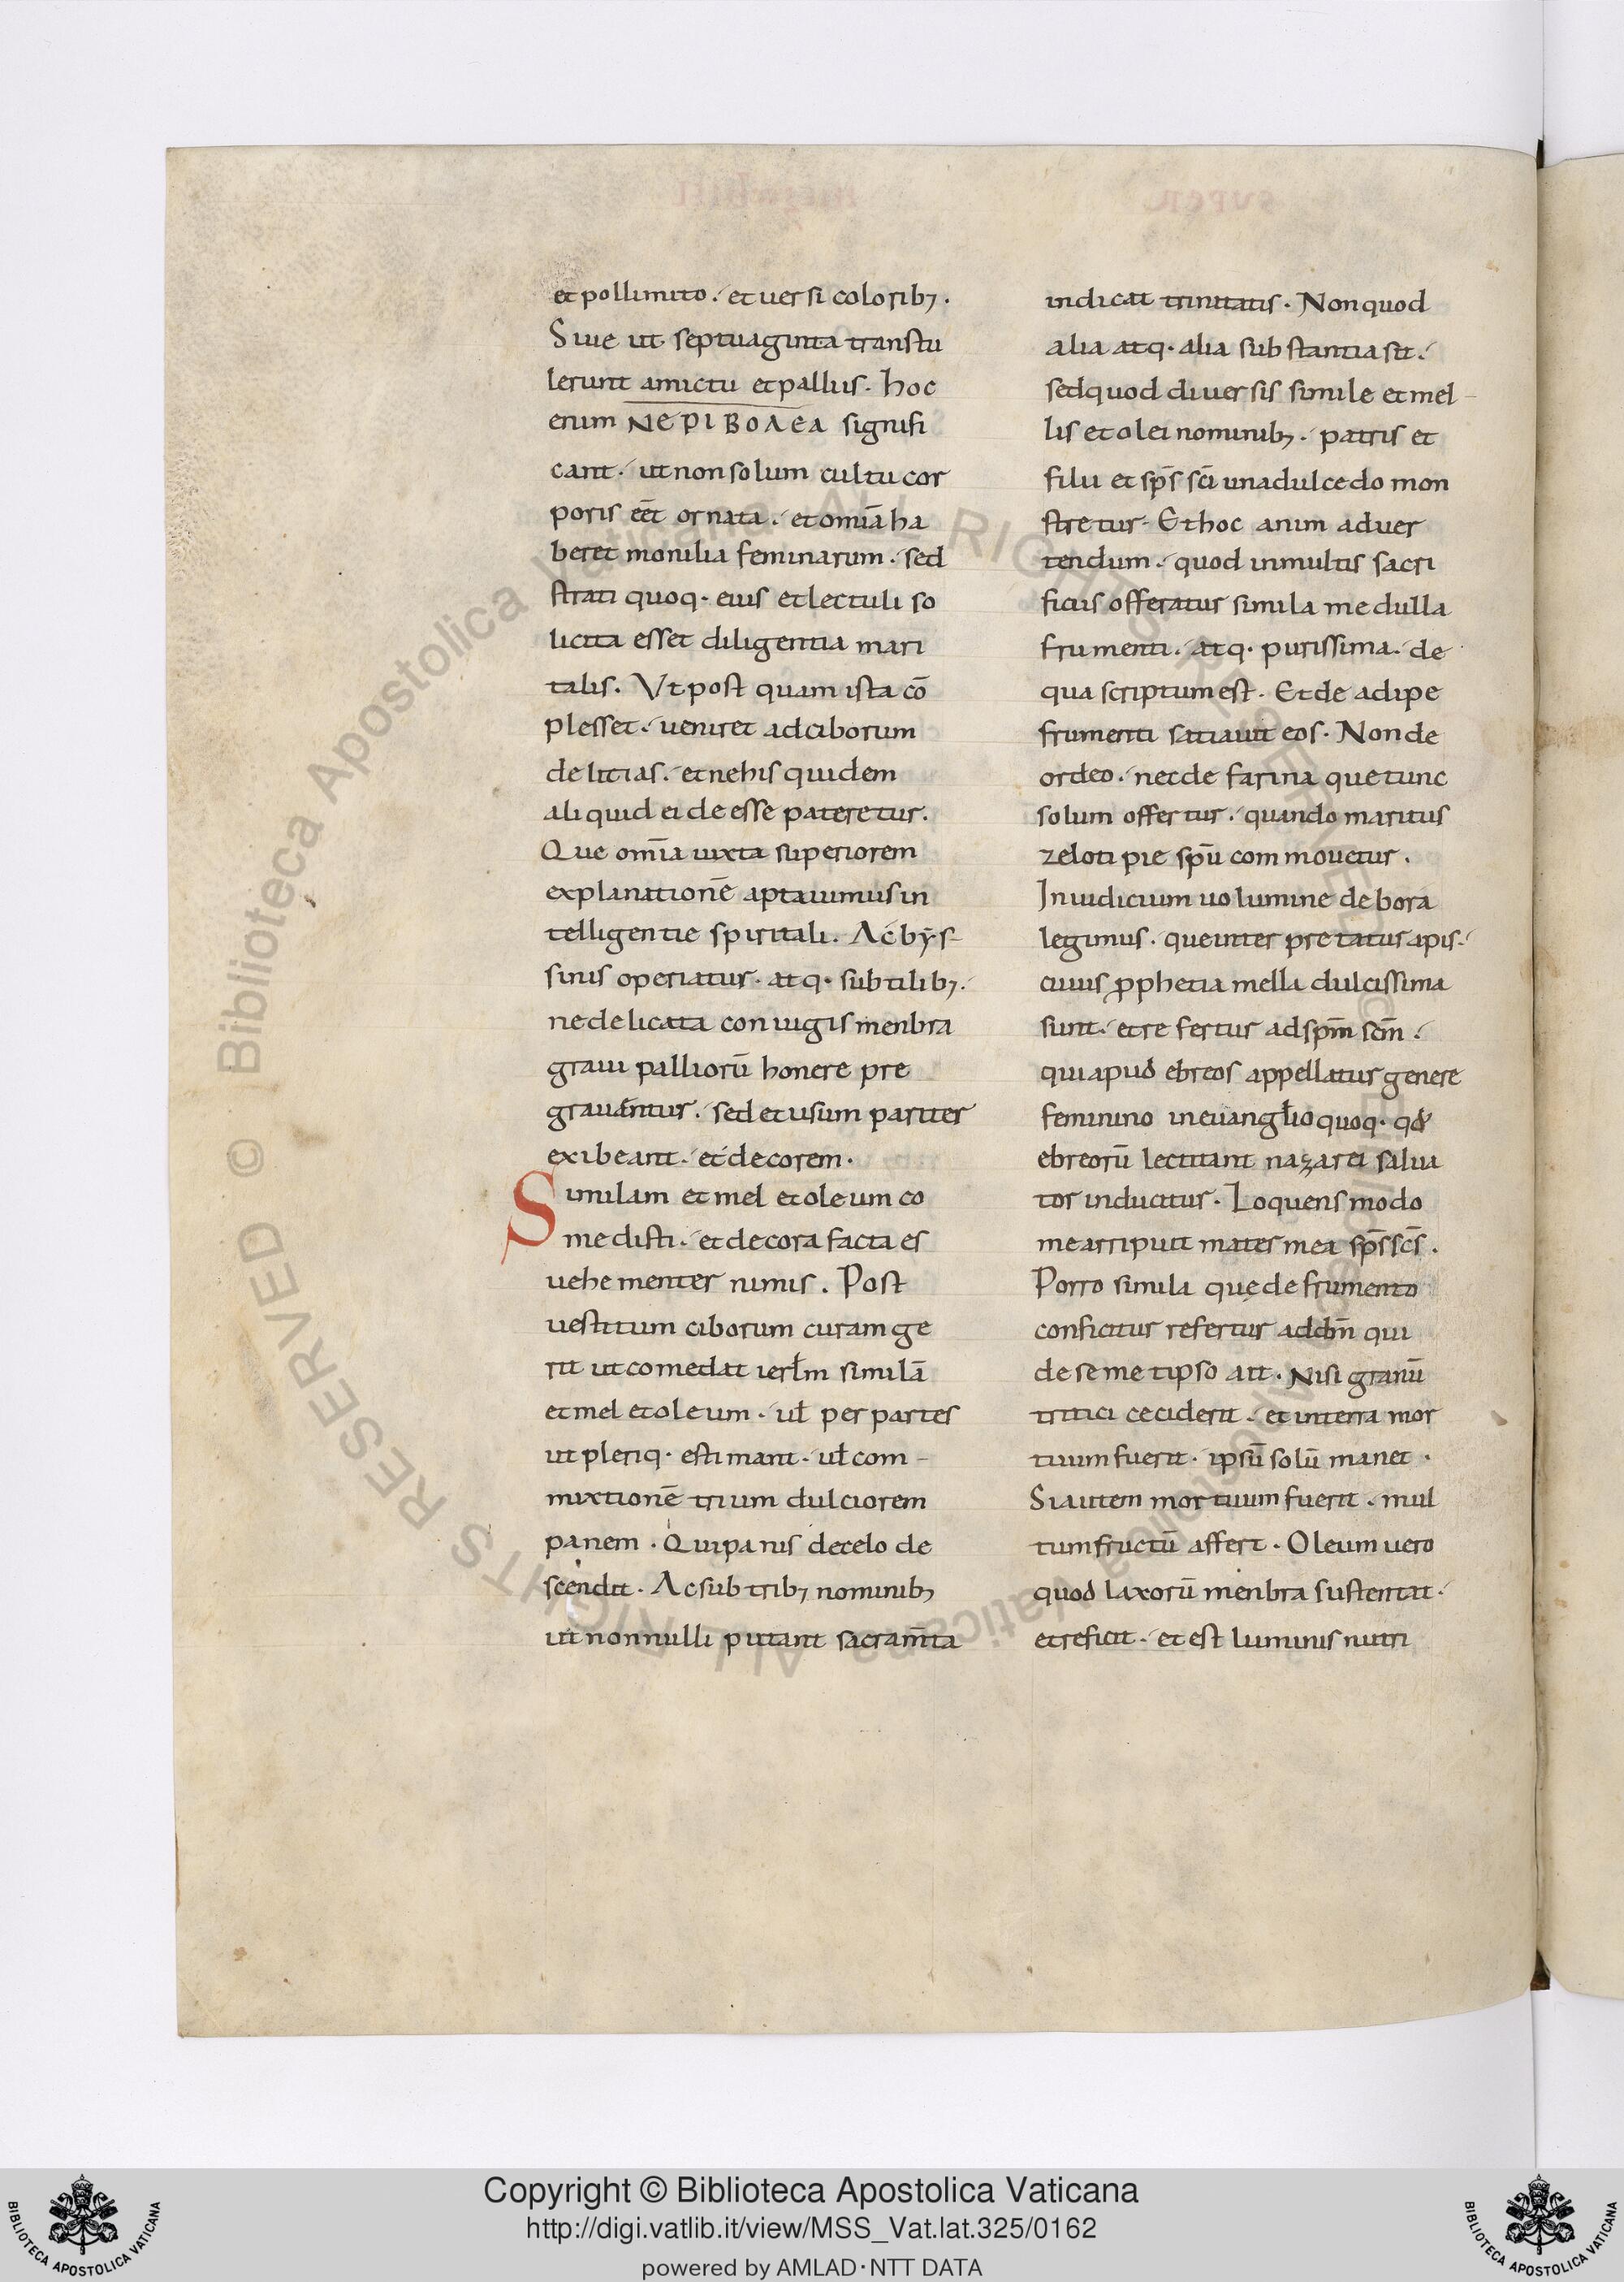 et pollimito. et uersi coloribꝫ.
Siue ut septuaginta transtu
lerunt amictu et palliis. hoc
enim ΝΕΡΙΒΟΛΕΑ signifi
cant. ut non solum cultu cor
poris eēt ornata. et omīa ha
beret monilia feminarum. sed
strati quoq. eius et lectuli so
licita esset diligentia mari
talis. Vt post quam ista cō
plesset. ueniret ad ciborum
delicias. et ne his quidem
aliquid ei deesse pateretur.
Que omīa iuxta superiorem
explanationē aptauimus in
telligentie spiritali. Ac bẏs-
sinis operiatur. atq. subtilibꝫ.
ne delicata coniugis menbra
graui palliorū honere pre
grauāntur. sed et usum pariter
exibeant. et decorem.
Similam et mel et oleum co
medisti. et decora facta es
uehementer nimis. Post
uestitum ciborum curam ge
rit ut comedat ierłm similā
et mel et oleum. uł per partes
ut pleriq. estimant. uł com-
mixtionē trium dulciorem
panem. Qui panis de celo de
scendit. Ac sub tribꝫ nominibꝫ
ut nonnulli putant sacram̄ta
indicat trinitatis. Non quod
alia atq. alia substantia sit.
sed quod diuersis simile et mel-
lis et olei nominibꝫ. patris et
filii et sp̄s sc̄i una dulcedo mon
stretur. Et hoc anim aduer
tendum. quod in multis sacri
ficiis offeratur simila medulla
frumenti. atq. purissima. de
qua scriptum est. Et de adipe
frumenti satiauit eos. Non de
ordeo. nec de farina que tunc
solum offertur. quando maritus
zelotipie spū commouetur.
In iudicium uolumine debora
legimus. que interpretatur apis.
cuius ꝓphetia mella dulcissima
sunt. et refertur ad spm̄ scm̄.
qui apud ebreos appellatur genere
feminino in euangłio quoq. qđ
ebreorū lectitant nazarei salua
tor inducitur. Loquens modo
me arripuit mater mea sp̄s sc̄s.
Porro simila quę de frumento
conficitur refertur ad dn̄m qui
de semetipso ait. Nisi granū
tritici ceciderit. et in terra mor
tuum fuerit. ipsū solū manet.
Si autem mortuum fuerit. mul
tum fructū affert. Oleum uero
quod laxorū menbra sustentat.
et reficit. et est luminis nutri
Copyright © Biblioteca Apostolica Vaticana
http://digi.vatlib.it/view/MSS_Vat.lat.325/0162
powered by AMLAD·NTT DATA
© Biblioteca Apostolica Vaticana ALL RIGHTS RESERVED
BIBLIOTECA APOSTOLICA VATICANA
BIBLIOTECA APOSTOLICA VATICANA